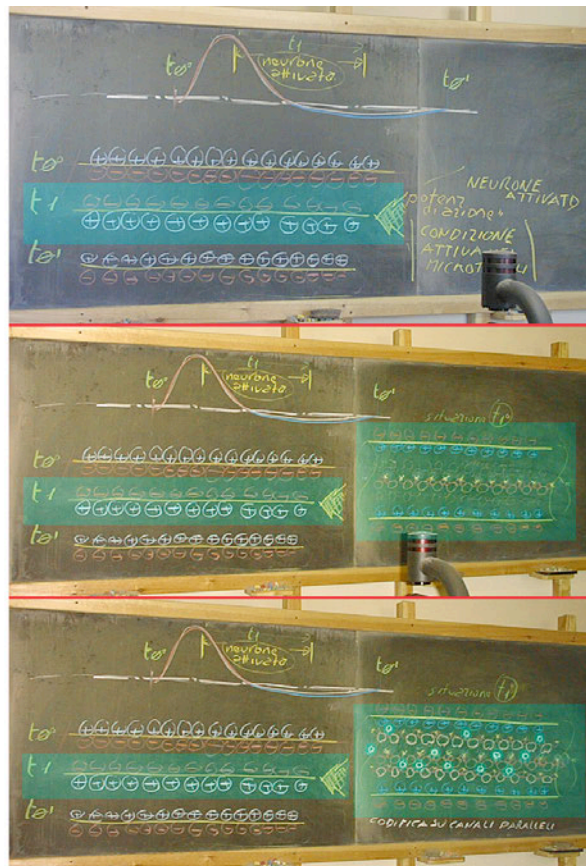 t1
neurone
attivato
t0°
t0'
t0°
t1
t0'
NEURONE
ATTIVATO
potenz
d'azione"
CONDIZIONE
t1
neurone
attivato
t0°
t0'
situazione t1
t0°
t1
t0'
t1
neurone
attivato
t0°
t0'
situazione t1
t0°
t1
t0'
CODIFICA SU CANALI PARALLELI